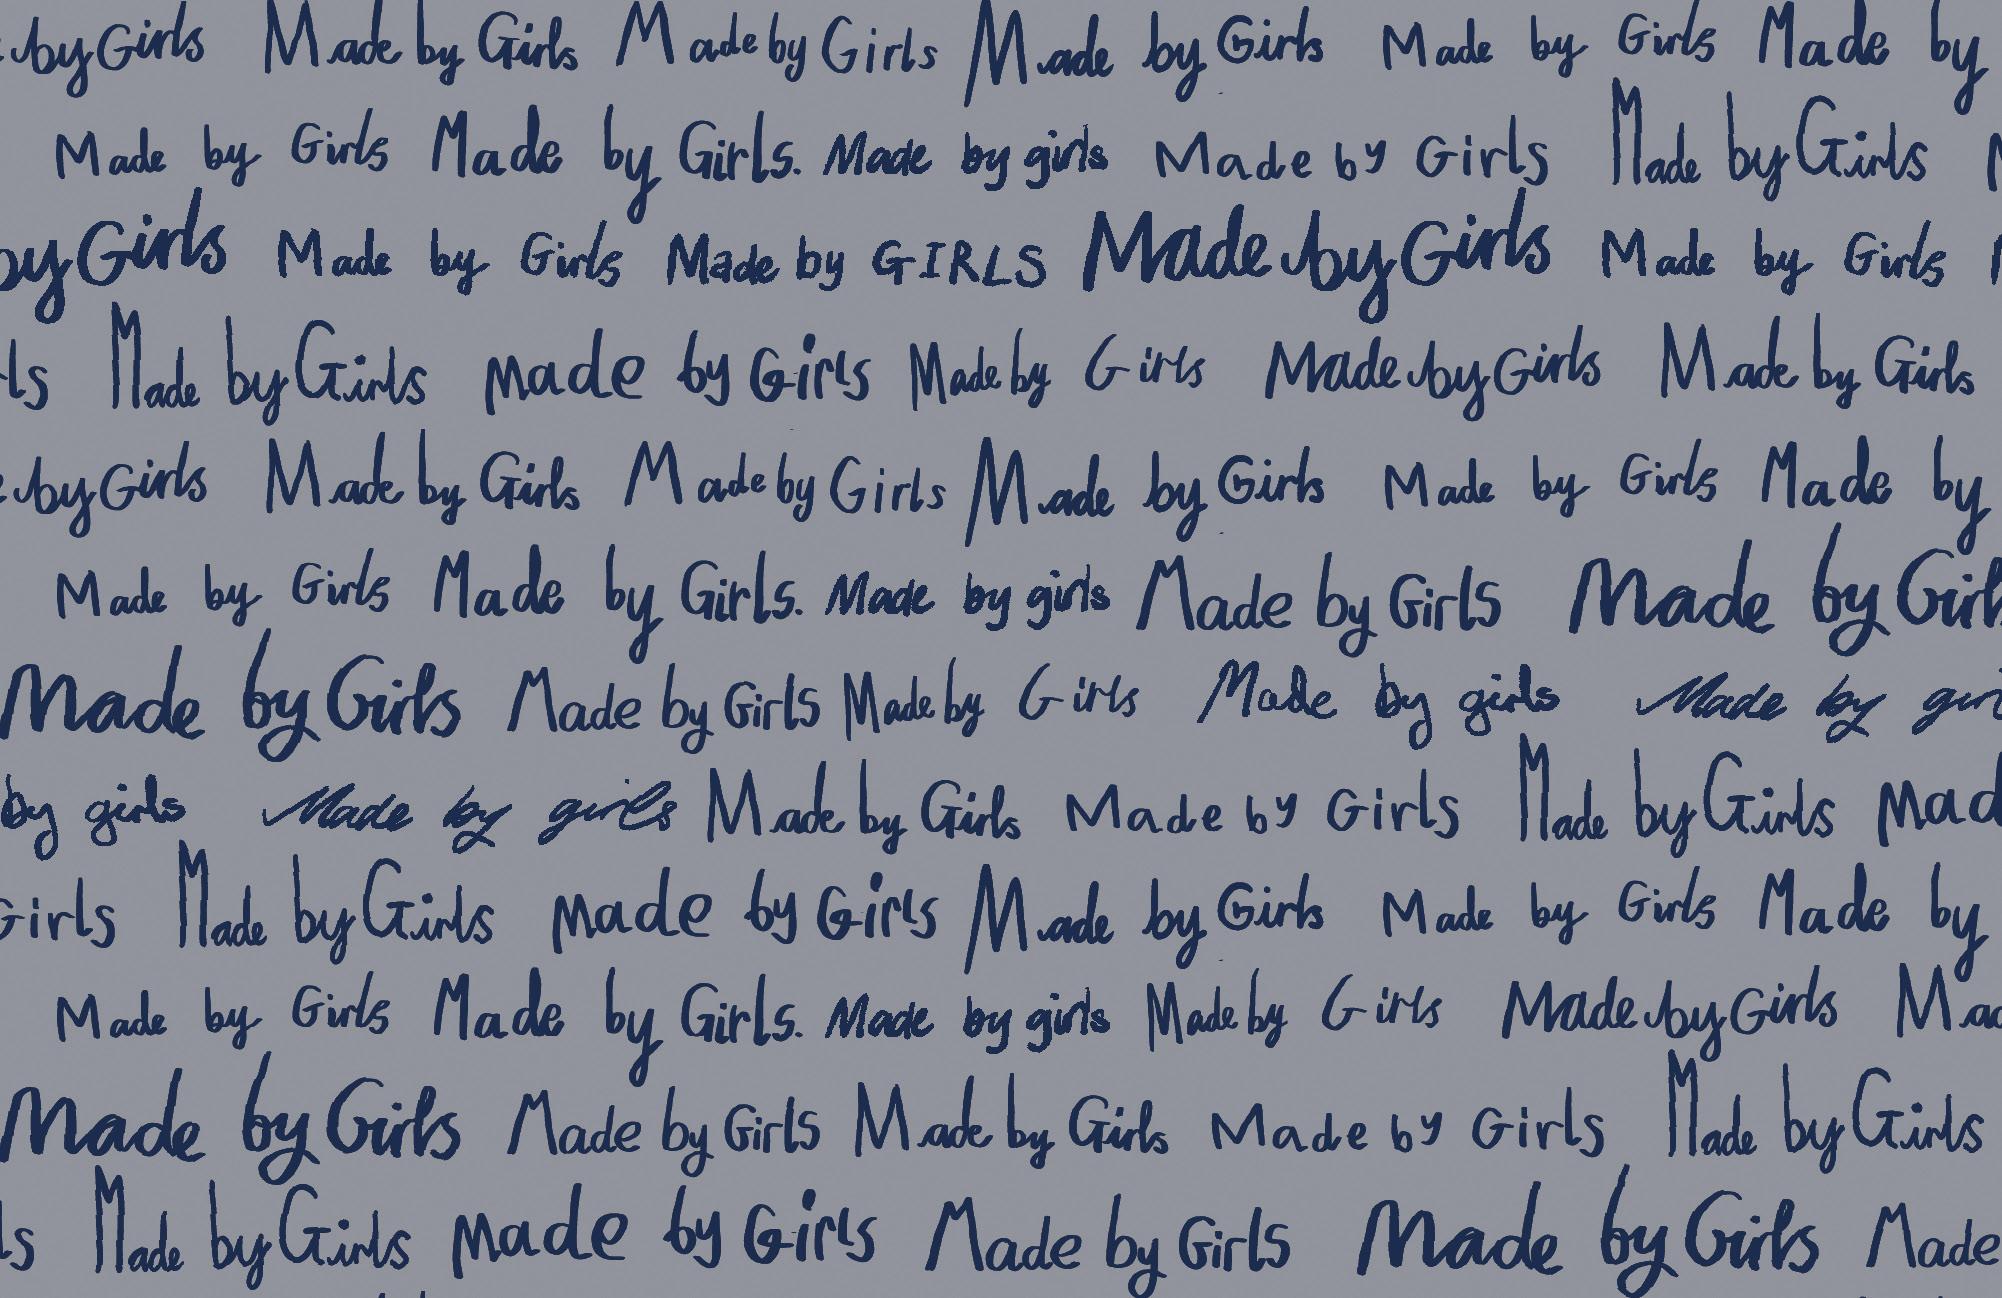 by Girls Made by Girls Made by Girls Made by Girls Made by Girls Made by
Made by Girls Made by Girls. Made by girls Made by Girls Made by Girls
by Girls Made by Girls Made by GIRLS Made by Girls Made by Girls
ls Made by Girls Made by Girls Made by Girls Made by Girls Made by Girls
by Girls Made by Girls Made by Girls Made by Girls Made by Girls Made by
Made by Girls Made by Girls. Made by girls Made by Girls Made by Girl
Made by Girls Made by Girls Made by Girls Made by girls Made by girl
by girls Made by girls Made by Girls Made by Girls Made by Girls Mad
Girls Made by Girls Made by Girls Made by Girls Made by Girls Made by
Made by Girls Made by Girls. Made by girls Made by Girls Made by Girls Mad
Made by Girls Made by Girls Made by Girls Made by Girls Made by Girls
ls Made by Girls Made by Girls Made by Girls Made by Girls Made